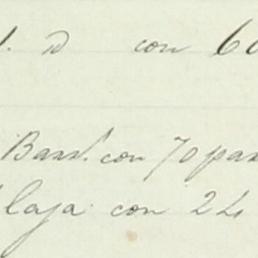 con 60
Barrl. con 70 par
caja con 24